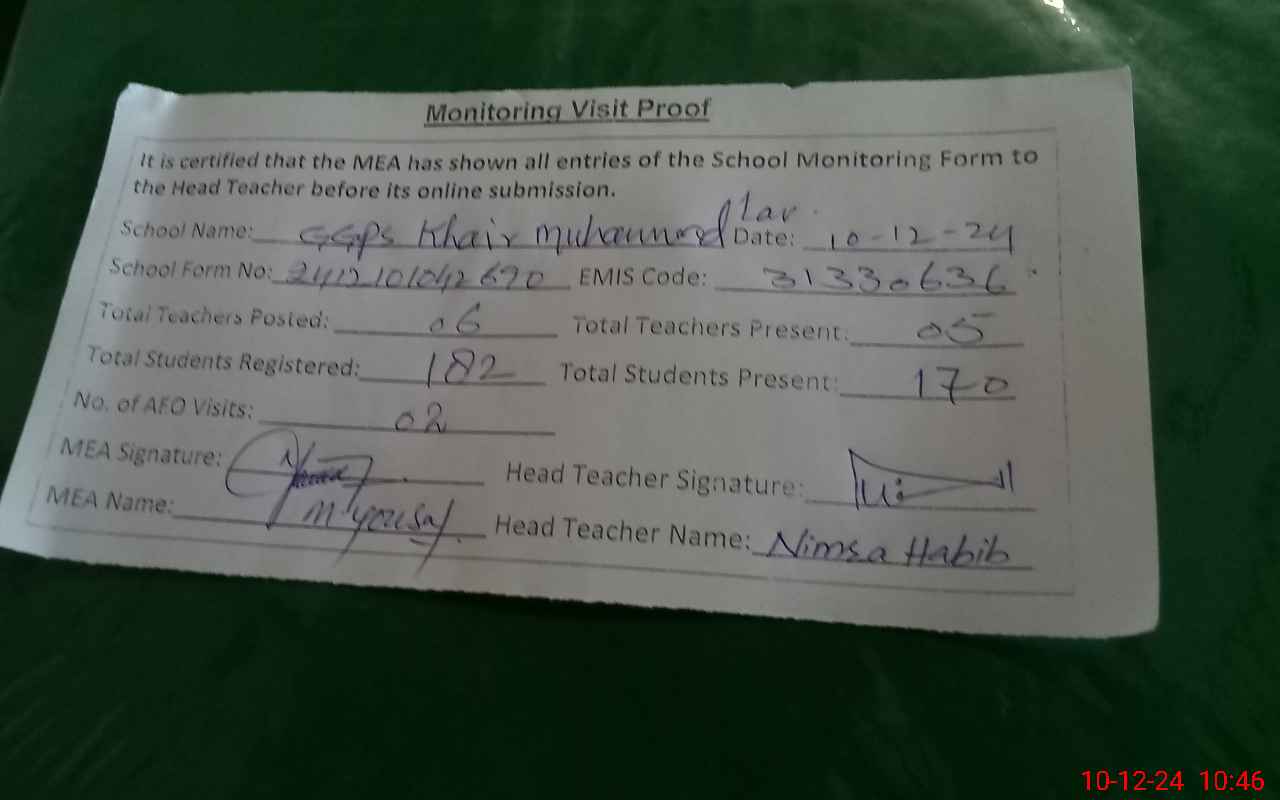 Monitoring Visit Proof
It is certified that the MEA has shown all entries of the School Monitoring Form to
the Head Teacher before its online submission.
School Name: GGPS Khair Muhammad Lar. Date: 10-12-24
School Form No: 2412101042690 EMIS Code: 31330636
Total Teachers Posted: 06 Total Teachers Present: 05
Total Students Registered: 182 Total Students Present: 170
No. of AEO Visits: 02
MEA Signature: Head Teacher Signature:
MEA Name: M yousaf Head Teacher Name: Nimsa Habib
10-12-24 10:46